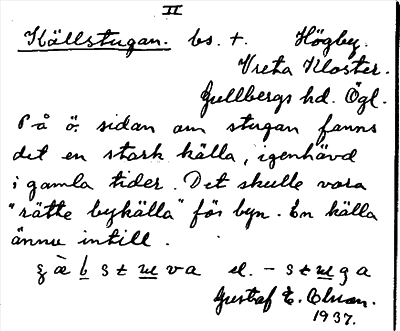 II
Källstugan. bs. +. Högby.
Vreta Kloster.
Gullbergs hd. Ögl.
På ö. sidan om stugan fanns
det en stark källa, igenhävd
i gamla tider. Det skulle vara
"rätte bykälla" för byn. En källa
ännu intill.
va el. -
Gustaf E. Olsson.
1937.